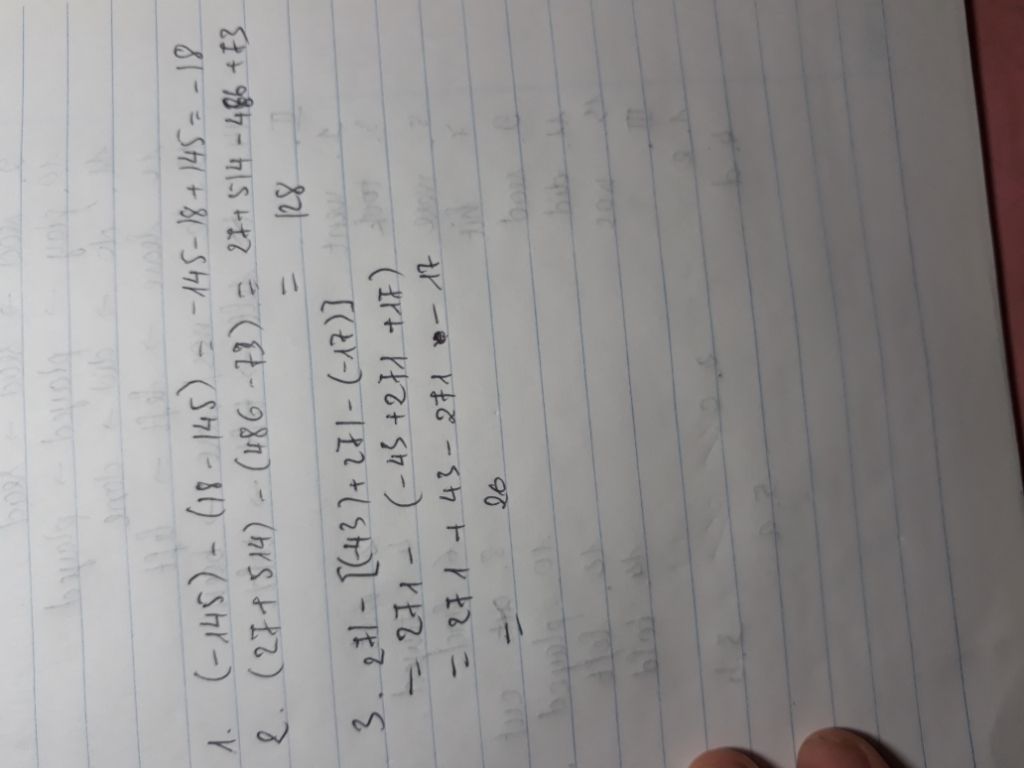 1. (-145) - (18 - 145) = -145 - 18 + 145 = -18
2. (27 + 514) - (486 - 73) = 27 + 514 - 486 + 73
= 128
3. 271 - [(-43) + 271 - (-17)]
= 271 - (-43 + 271 + 17)
= 271 + 43 - 271 - 17
= 26